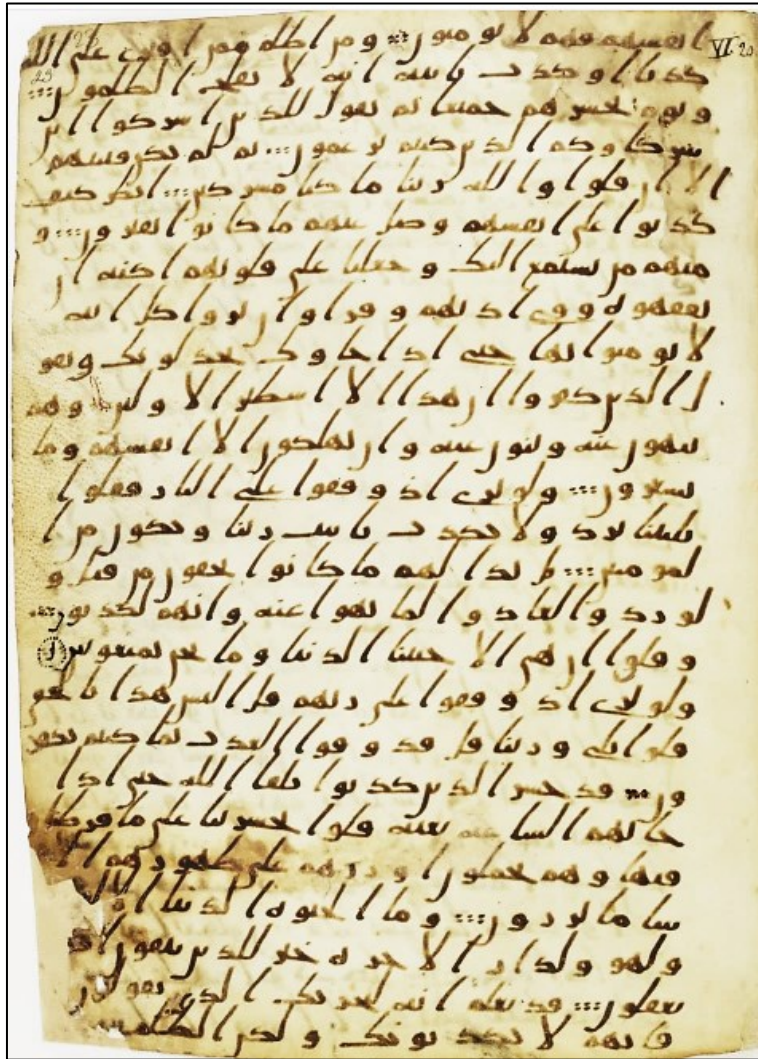 VI 20
ا نفسهم فهم لا يومنون ومن اظلم ممن افترى على الله
كذبا او كذب بايته انه لا يفلح الظلمون
ويوم نحشرهم جميعا ثم نقول للذين اشركوا اين
شركاوكم الذين كنتم تزعمون ثم لم تكن فتنتهم
الا ان قلوا والله ربنا ما كنا مشركين انظر كيف
كذبوا على انفسهم وضل عنهم ما كانوا يفترون و
منهم من يستمع اليك وجعلنا على قلوبهم اكنه ان
يفقهوه وفي اذنهم وقرا وان يروا كل ايه
لا يومنوا بها حتى اذا جاوك يجدلونك ويقو
ل الذين كفروا ان هذا الا اسطير الاولين وهم
ينهون عنه وينون عنه وان يهلكون الا انفسهم وما
يشعرون ولو ترى اذ وقفوا على النار فقلوا
يليتنا نرد ولا نكذب بايت ربنا ونكون من ا
لمومنين بل بدا لهم ما كانوا يخفون من قبل و
لو ردوا لعادوا لما نهوا عنه وانهم لكذبون
وقلوا ان هي الا حيتنا الدنيا وما نحن بمبعوثين
ولو ترى اذ وقفوا على ربهم قل اليس هذا بالحق
قلوا بلى وربنا قل فذوقوا العذب بما كنتم تكفر
ون قد خسر الذين كذبوا بلقا الله حتى اذا
جاتهم الساعه بغته قلوا يحسرتنا على ما فرطنا
فيها وهم يحملون اوزرهم على ظهورهم الا
سا ما يزرون وما الحيوه الدنيا الا
ولهو وللدار الاخره خير للذين يتقون
تعقلون قد نعلم انه ليحزنك الذي يقولون
فانهم لا يكذبونك ولكن الظلمين